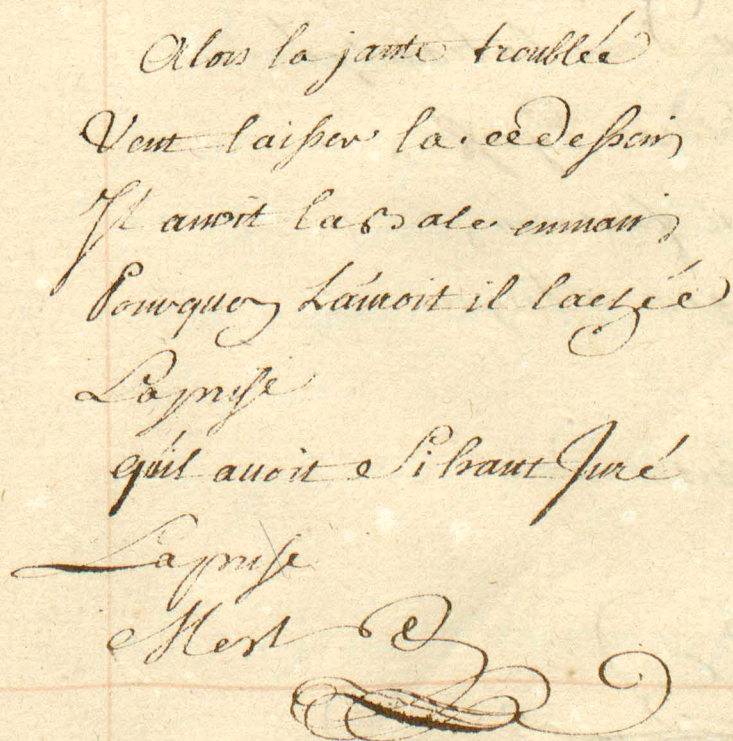 Alors la jante troublée
Veut laisser la ce dessein
Il avoit la enmain
Pourquoy Lauroit il lachée
Laprise
qu'il avoit Si haut Juré
Laprise